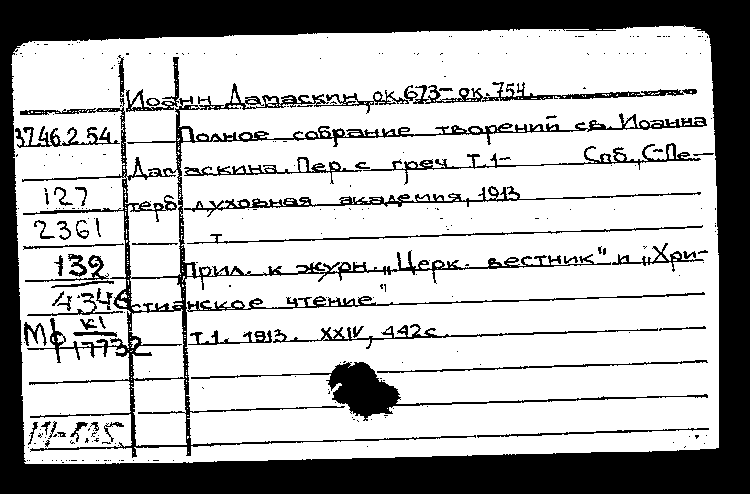 Иоанн Дамаскин, ок.673- ок. 754.
3746.2.54. Полное собрание творений св. Иоанна
Дамаскина. Пер. с греч. Т.1- Спб., С-Пе-
127 терб. духовная академия, 1913
2361 т.
132 Прил. к журн. „Церк. вестник" и „Хри-
4346 стианское чтение".
Мф К1 Т.1. 1913. XXIV, 442с.
17732